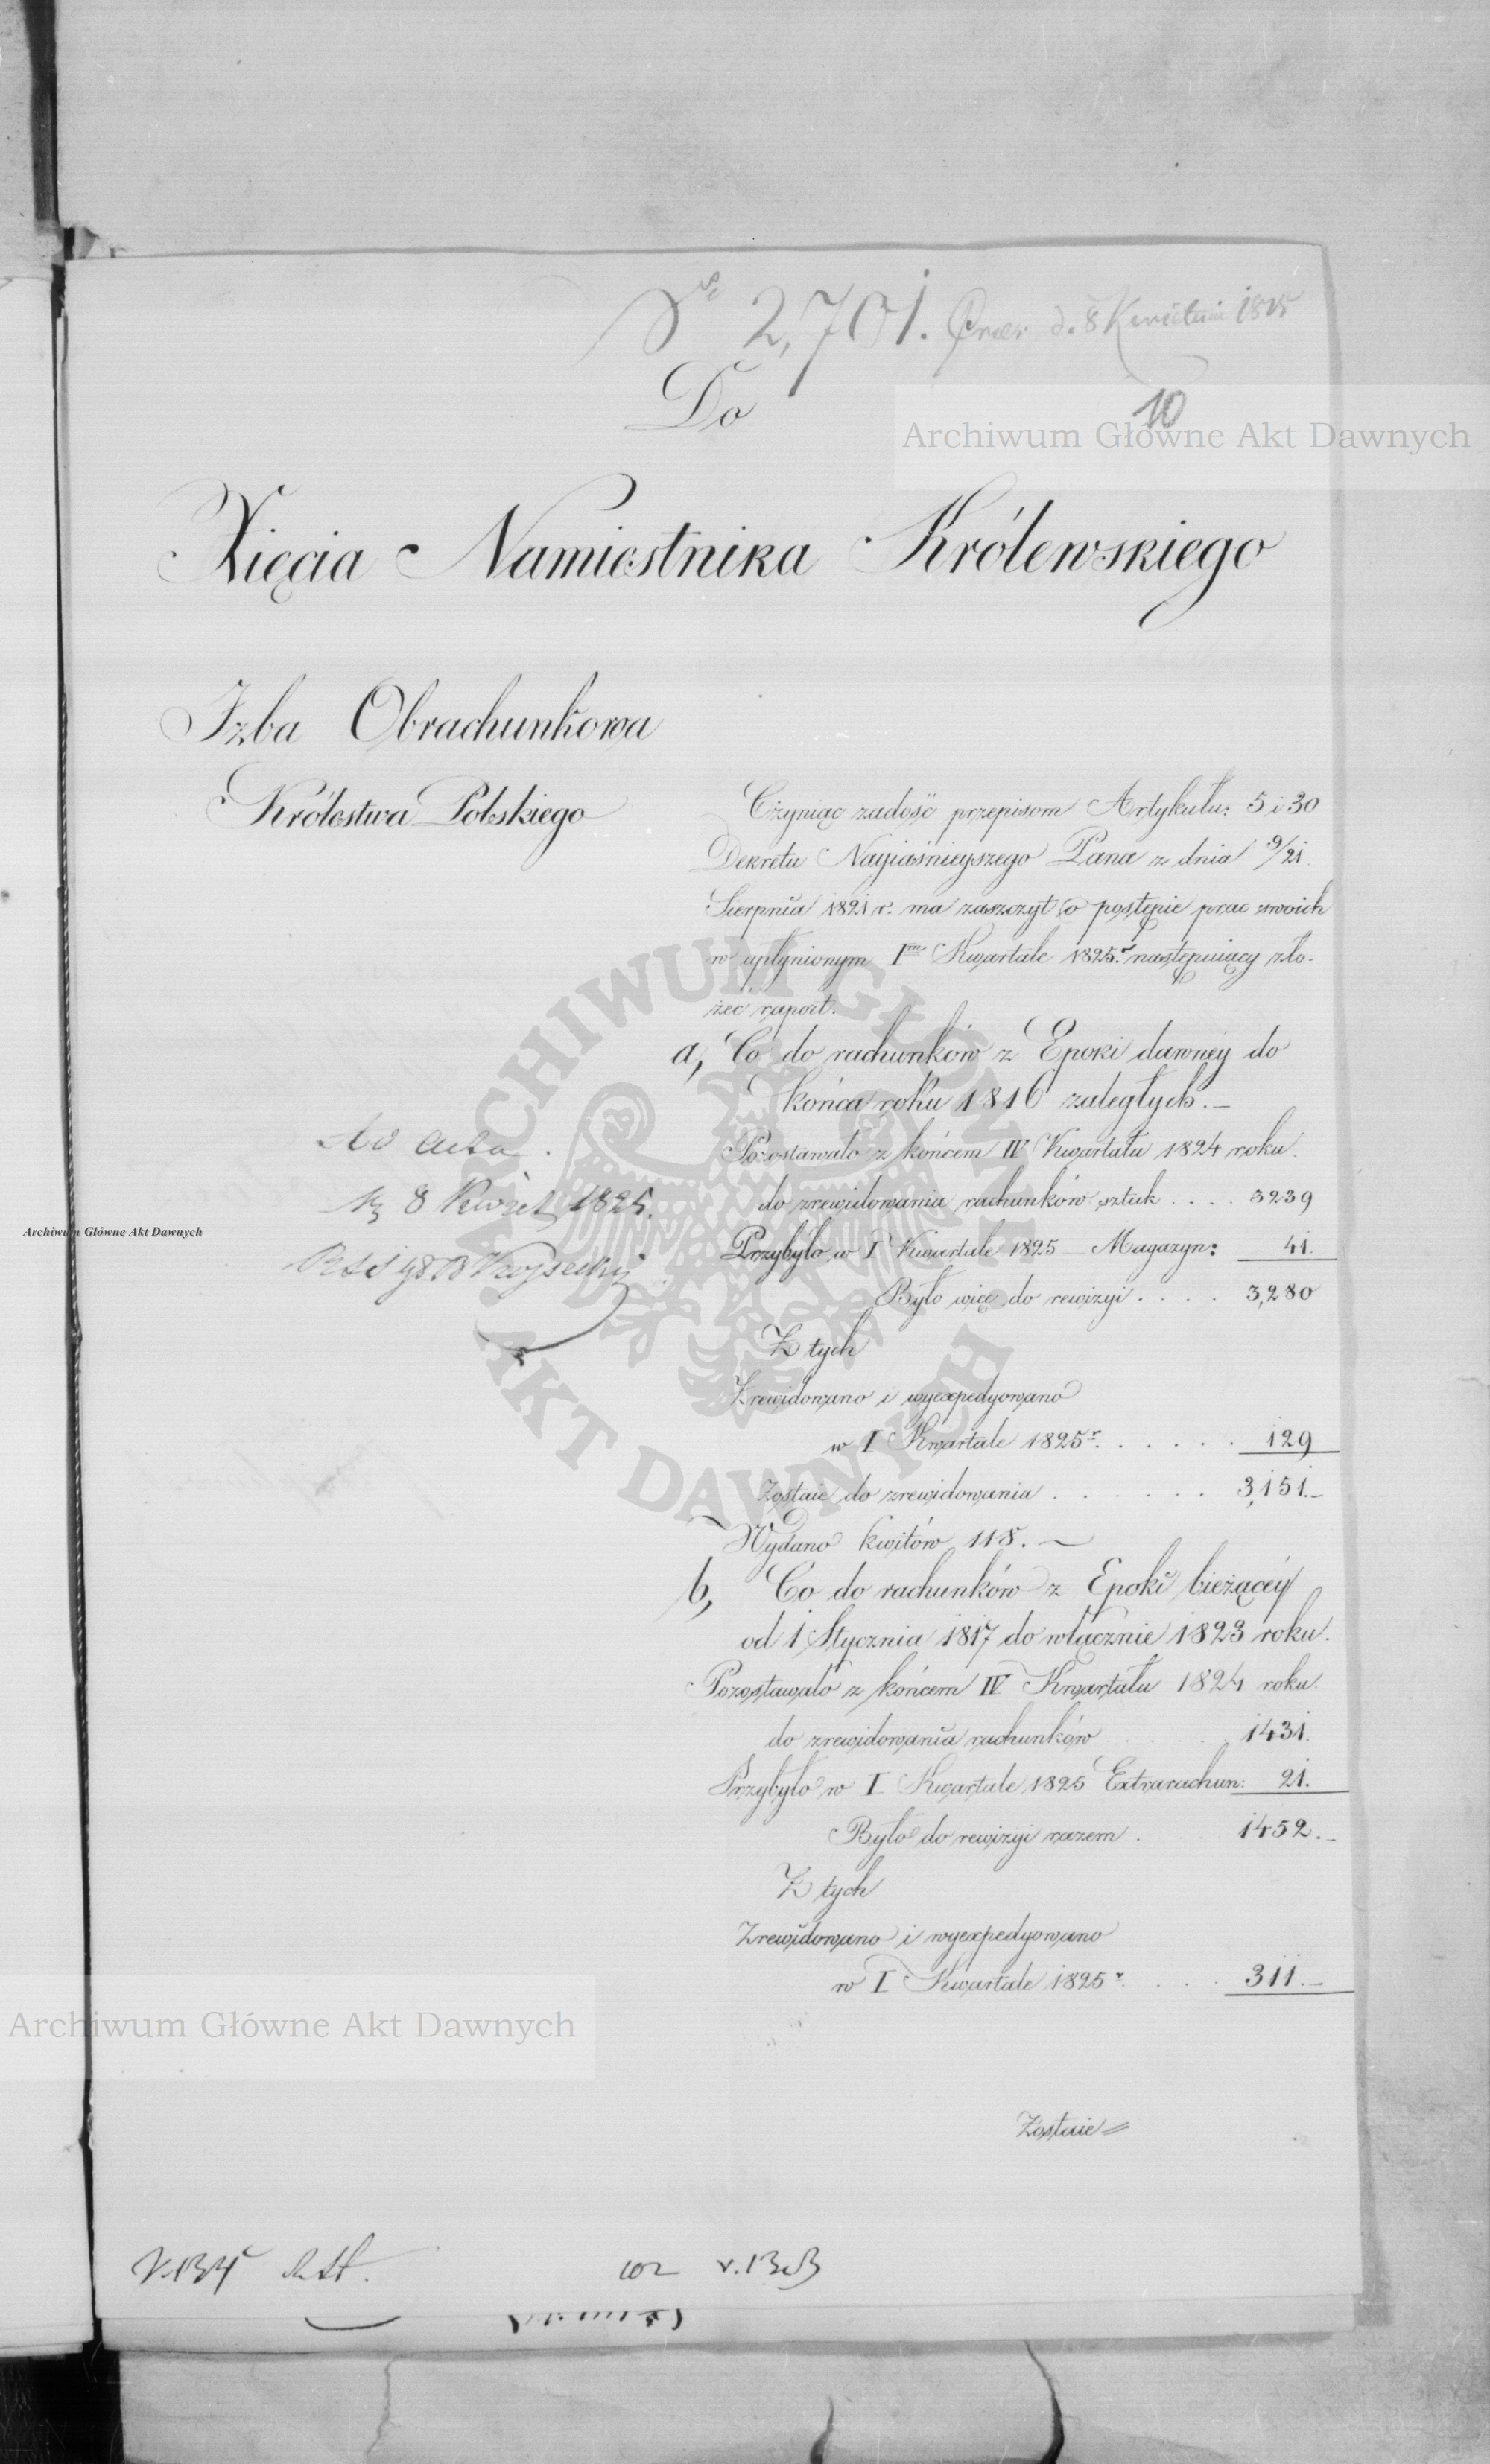 No 2,701. Præs. d. 8 Kwietnia 1825
Do
10
Archiwum Główne Akt Dawnych
Xięcia Namiestnika Królewskiego
Izba Obrachunkowa
Królestwa Polskiego
Czyniąc zadość przepisom Artykułu: 5 i 30
Dekretu Nayiaśnieyszego Pana z dnia 9/21.
Sierpnia 1821 r. ma zaszczyt o postępie prac swoich
w upłynionym Im Kwartale 1825 r. następuiący zło-
żeć raport.
a, Co do rachunków z Epoki dawney do
końca roku 1816 zaległych. –
Pozostawało z końcem IV Kwartału 1824 roku.
do zrewidowania rachunków sztuk . . . . 3239
Przybyło w I Kwartale 1825 – Magazyn: 41.
Było więc do rewizyi . . . . 3,280
Z tych
Zrewidowano i wyexpedyowano
w I Kwartale 1825 r. . . . . . 129
Zostaie do zrewidowania . . . . . . . 3,151.–
Wydano kwitów 118. –
b, Co do rachunków z Epoki bieżącéy
od 1 Stycznia 1817 do włącznie 1823 roku.
Pozostawało z końcem IV Kwartału 1824 roku.
do zrewidowania rachunków . . . . . 1431.
Przybyło w I Kwartale 1825 Extrarachun: 21.
Było do rewizyi razem . . . . 1452.–
Z tych
Zrewidowano i wyexpedyowano
w I Kwartale 1825 r. . . . . 311.–
Zostaie
Ad acta.
8 Kwiet 1825.
Archiwum Główne Akt Dawnych
ARCHIWUM GŁÓWNE AKT DAWNYCH
Archiwum Główne Akt Dawnych